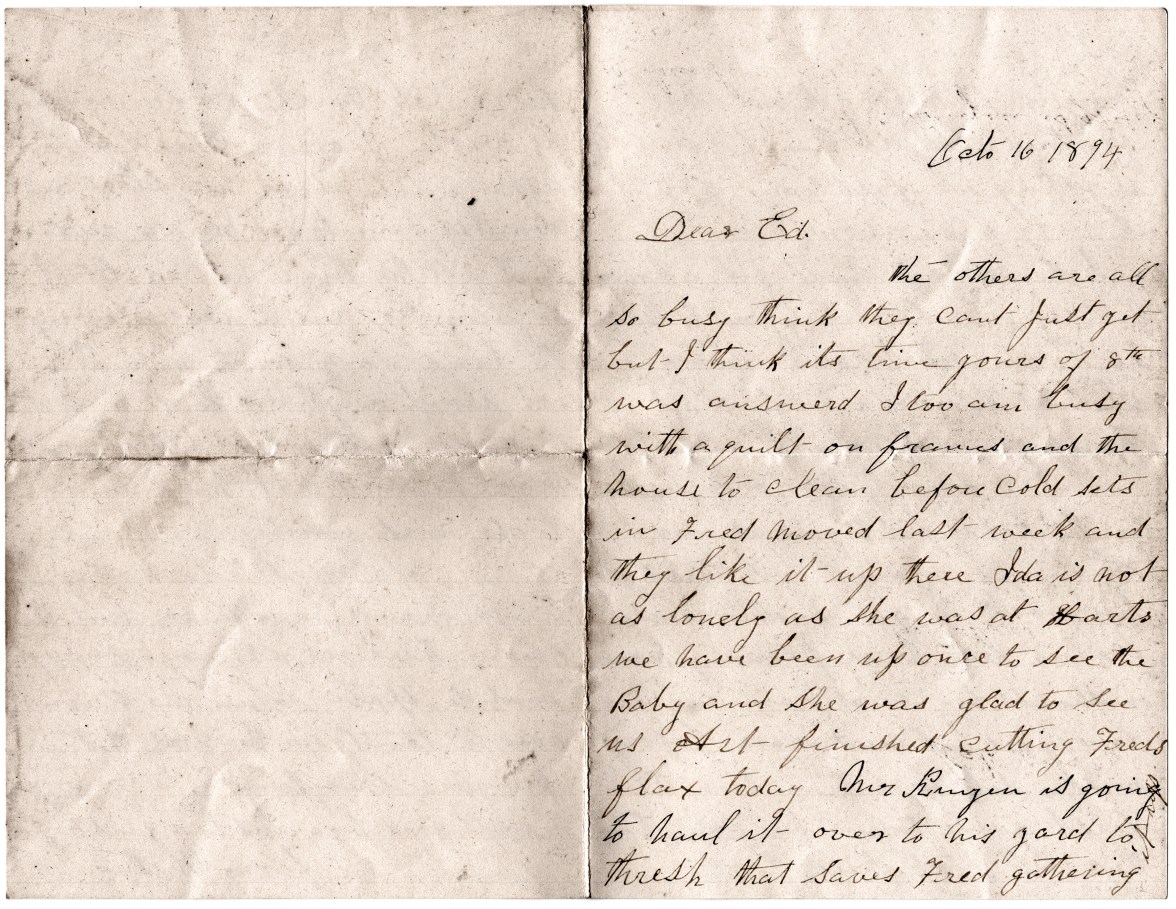 Octo 16 1894
Dear Ed.
the others are all
so busy think they cant Just get
but I think its time yours of 8th
was answerd I too am busy
with a quilt on frames and the
house to clean before Cold sets
in Fred moved last week and
they like it up there Ida is not
as lonely as she was at Harts
we have been up once to see the
Baby and she was glad to see
us Art finished cutting Freds
flax today Mr is going
to haul it over to his yard to
thresh that saves Fred gathering